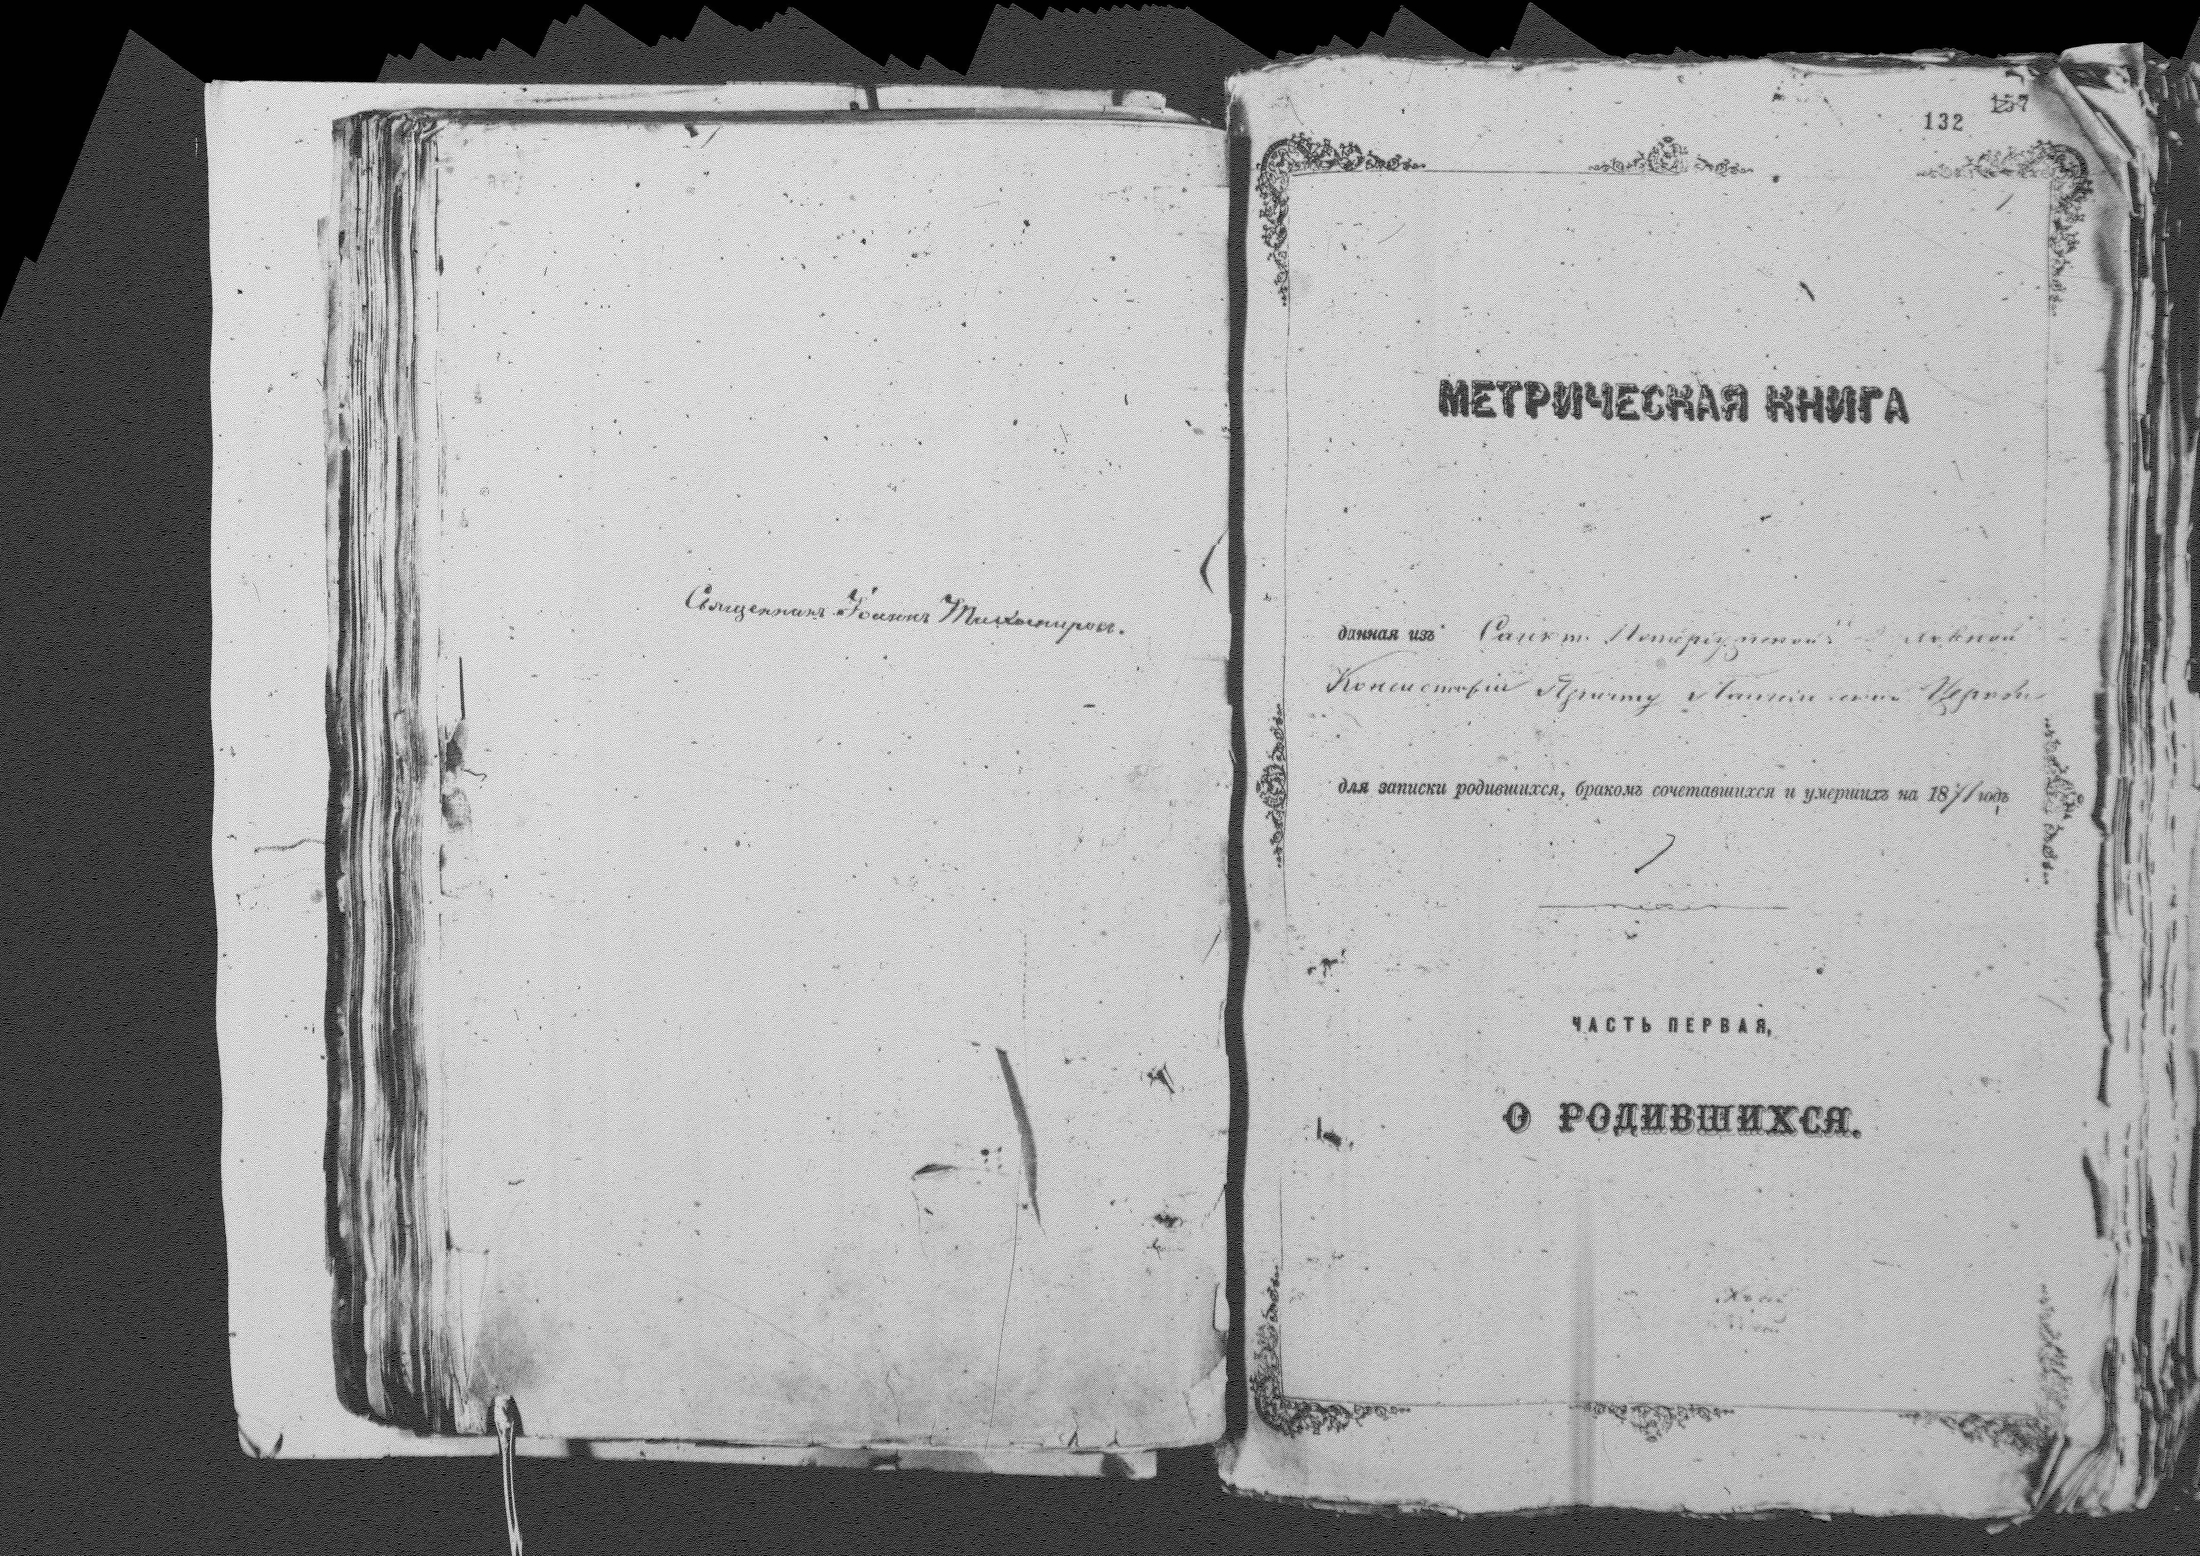 Священникъ Іоаннъ Тихомировъ.
132
157
МЕТРИЧЕСКАЯ КНИГА
данная изъ Санкт Петербургской
Консисторіи Причту Церкви
для записки родившихся, бракомъ сочетавшихся и умершихъ на 1871 годъ
ЧАСТЬ ПЕРВАЯ,
О РОДИВШИХСЯ.